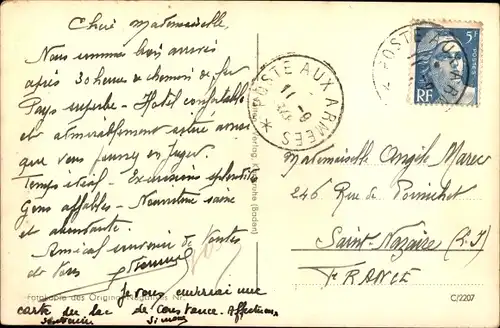 Chère Mademoiselle,
Nous sommes bien arrivés
après 30 heures de chemin de fer
Pays superbe - Hotel confortable
et admirablement situé ainsi
que vous pouvez en juger.
Temps idéal - Excursions splendides
Gens affables - Nourriture saine
et abondante.
Amical souvenir de
de Paris
Je vous enverrai une
carte du lac de Constance. Affectueux
souvenir Simone
POSTE AUX ARMÉES
11-9
POSTE AUX ARMÉES
5F
POSTES
RF
Mademoiselle Angèle Marec
246 Rue de Pornichet
Saint-Nazaire (L.I)
FRANCE
Verlag Karlsruhe (Baden)
Fotokopie des Original
C/2207